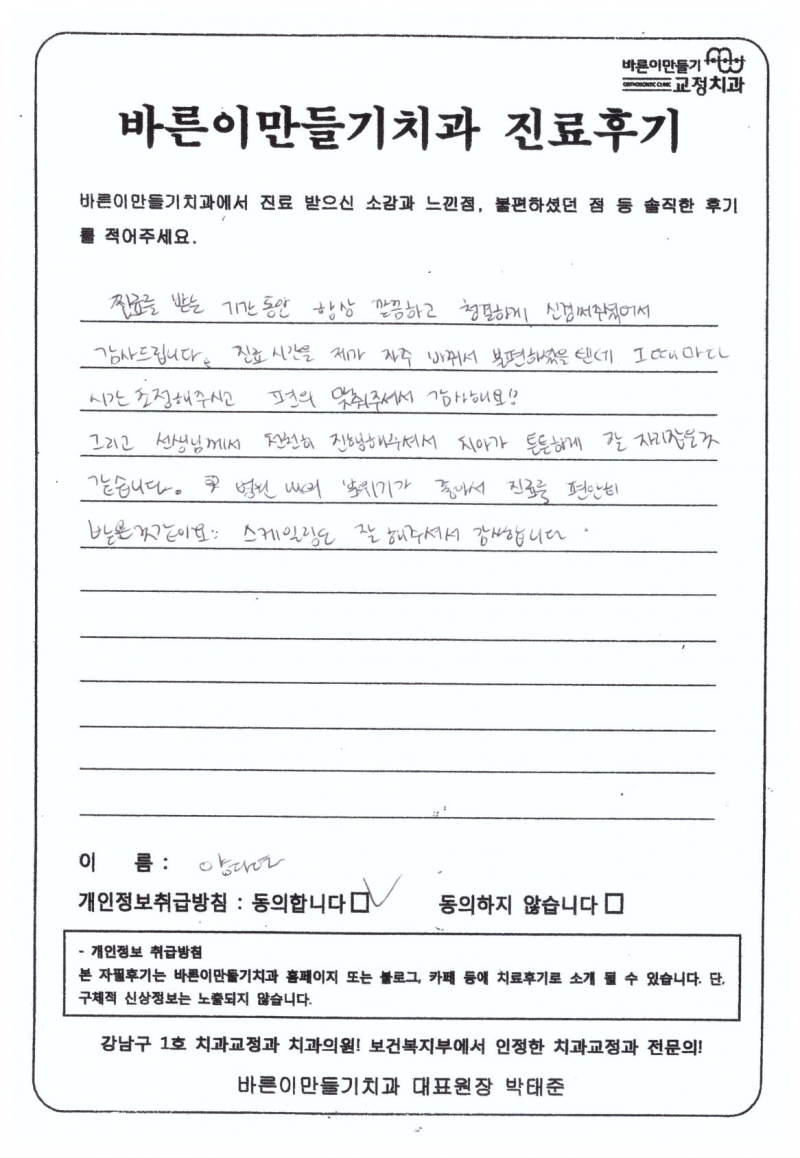 바른이만들기
ORTHODONTIC CLINIC 교정치과
바른이만들기치과 진료후기
바른이만들기치과에서 진료 받으신 소감과 느낀점, 불편하셨던 점 등 솔직한 후기
를 적어주세요.
진료를 받는 기간동안 항상 깔끔하고 청결하게 신경써주셨어서
감사드립니다. 진료시간을 제가 자주 바꿔서 불편하셨을텐데 그때마다
시간 조정해주시고 편의 맞춰주셔서 감사해요!!
그리고 선생님께서 천천히 진행해주셔서 치아가 튼튼하게 잘 자리잡은것
같습니다. 병원 내의 분위기가 좋아서 진료를 편안히
받은것같아요:: 스케일링도 잘 해주셔서 감사합니다.
이 름 :
개인정보취급방침 : 동의합니다 동의하지 않습니다
- 개인정보 취급방침
본 자필후기는 바른이만들기치과 홈페이지 또는 블로그, 카페 등에 치료후기로 소개 될 수 있습니다. 단,
구체적 신상정보는 노출되지 않습니다.
강남구 1호 치과교정과 치과의원! 보건복지부에서 인정한 치과교정과 전문의!
바른이만들기치과 대표원장 박태준